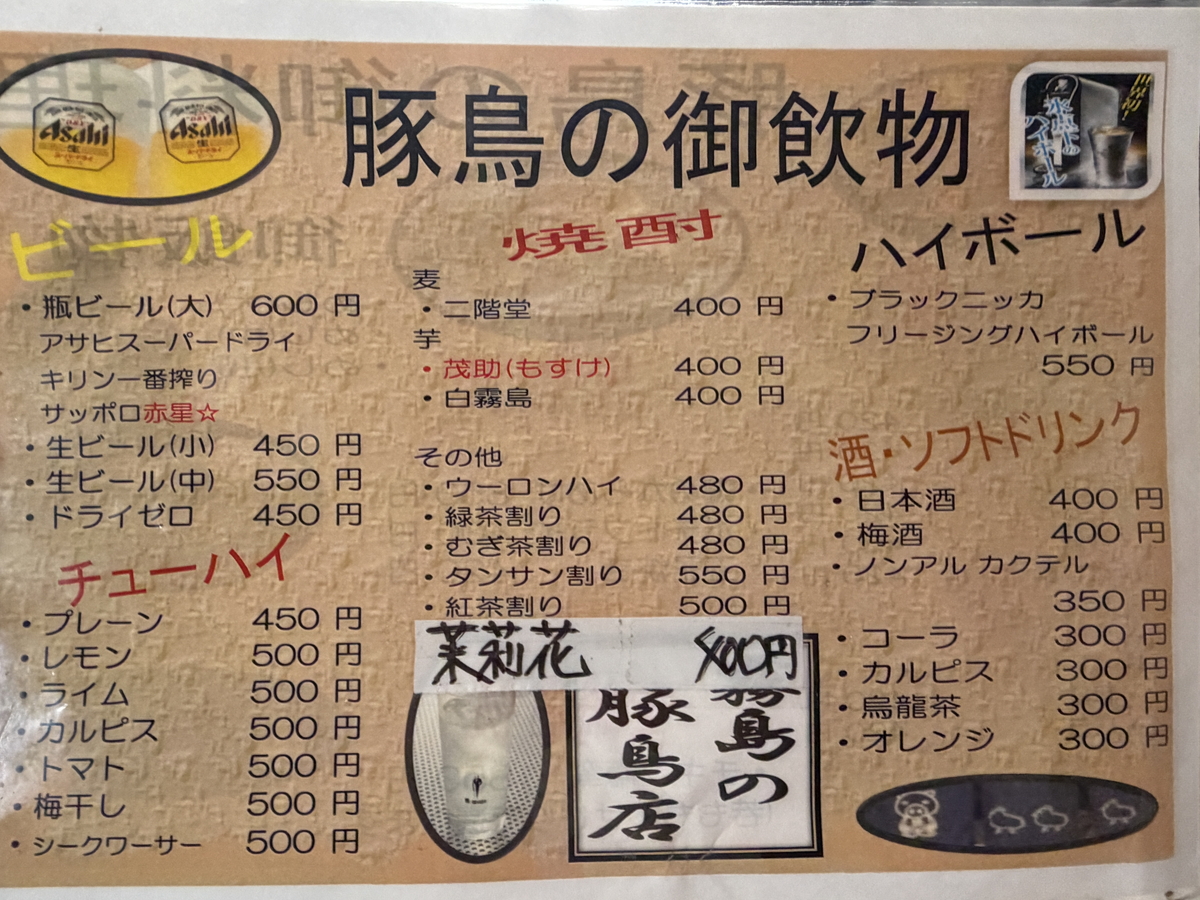 豚鳥の御飲物
Asahi
生
Asahi
生
氷点下の
ハイボール
ビール
・瓶ビール(大) 600 円
アサヒスーパードライ
キリン一番搾り
サッポロ赤星☆
・生ビール(小) 450 円
・生ビール(中) 550 円
・ドライゼロ 450 円
チューハイ
・プレーン 450 円
・レモン 500 円
・ライム 500 円
・カルピス 500 円
・トマト 500 円
・梅干し 500 円
・シークワーサー 500 円
焼酎
麦
・二階堂 400 円
芋
・茂助(もすけ) 400 円
・白霧島 400 円
その他
・ウーロンハイ 480 円
・緑茶割り 480 円
・むぎ茶割り 480 円
・タンサン割り 550 円
・紅茶割り 500 円
茉莉花 400円
霧島の
豚鳥店
ハイボール
・ブラックニッカ
フリージングハイボール
550 円
酒・ソフトドリンク
・日本酒 400 円
・梅酒 400 円
・ノンアル カクテル
350 円
・コーラ 300 円
・カルピス 300 円
・烏龍茶 300 円
・オレンジ 300 円